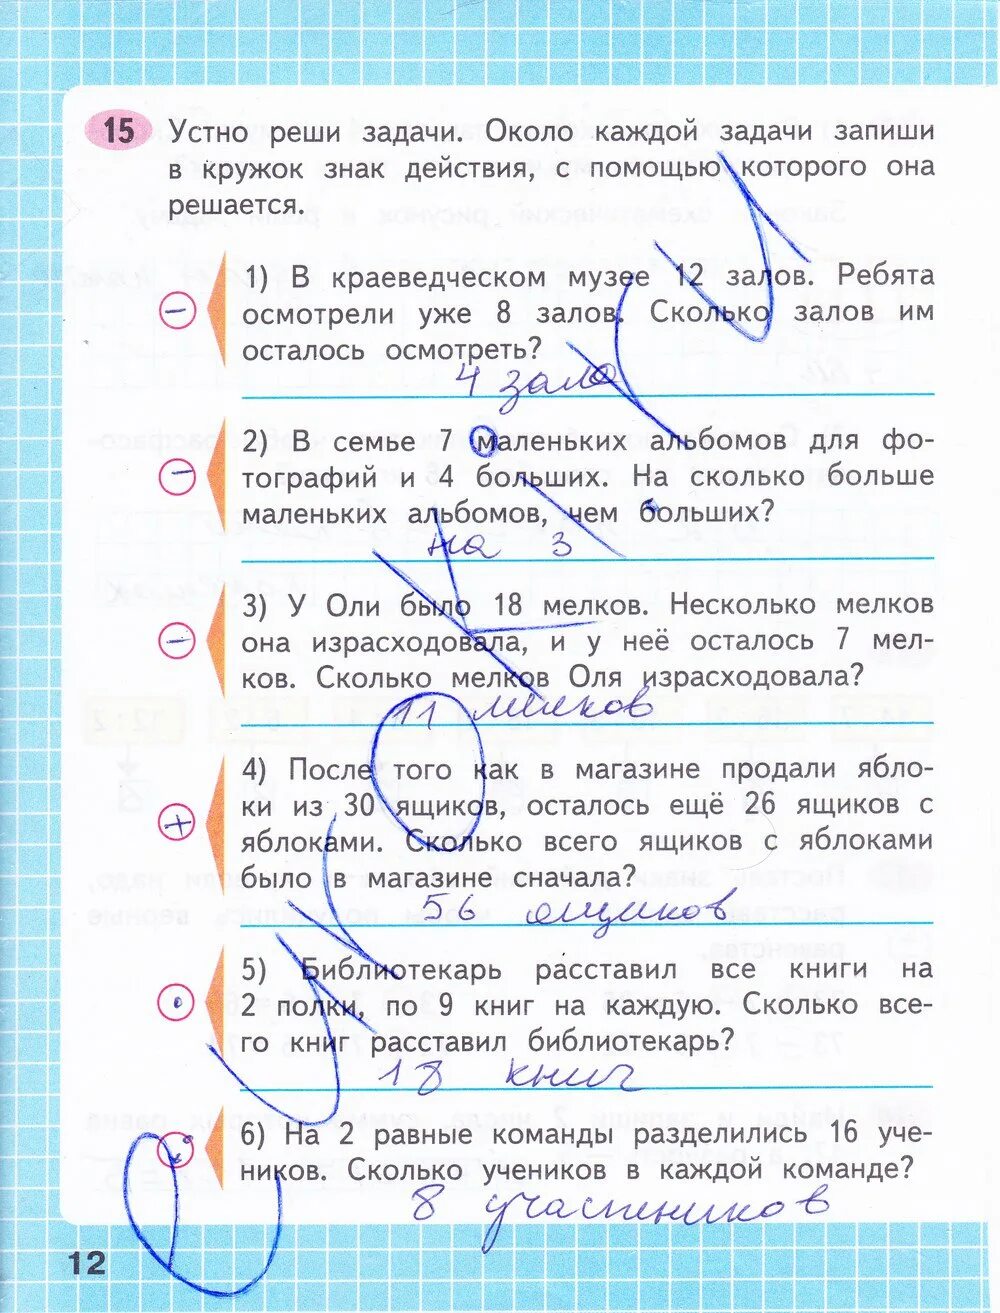 15 Устно реши задачи. Около каждой задачи запиши
в кружок знак действия, с помощью которого она
решается.
1) В краеведческом музее 12 залов. Ребята
− осмотрели уже 8 залов. Сколько залов им
осталось осмотреть?
4 зала
2) В семье 7 маленьких альбомов для фо-
− тографий и 4 больших. На сколько больше
маленьких альбомов, чем больших?
на 3
3) У Оли было 18 мелков. Несколько мелков
− она израсходовала, и у неё осталось 7 мел-
ков. Сколько мелков Оля израсходовала?
11 мелков
4) После того как в магазине продали ябло-
+ ки из 30 ящиков, осталось ещё 26 ящиков с
яблоками. Сколько всего ящиков с яблоками
было в магазине сначала?
56 ящиков
5) Библиотекарь расставил все книги на
· 2 полки, по 9 книг на каждую. Сколько все-
го книг расставил библиотекарь?
18 книг
6) На 2 равные команды разделились 16 уче-
: ников. Сколько учеников в каждой команде?
8 участников
12